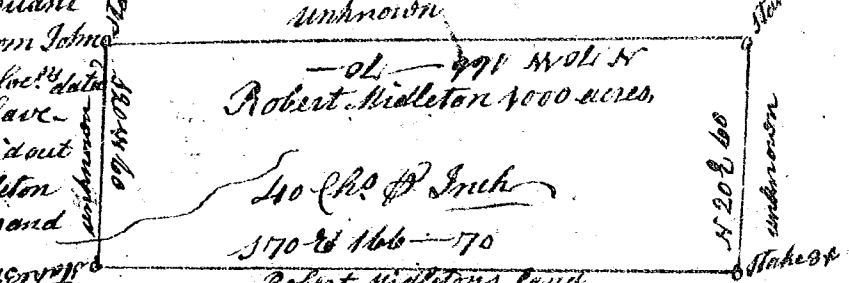 unknown
om John
loc.rs date
ave-
idout
leton
and
N 70 W 166 — 70 —
Robert Midleton 1000 acres,
40 Chs ⅌ Inch
S 70 E 166 — 70
Robert Midletons land
S 20 W 60
unknown
N 20 E 60
unknown
Stake 3x